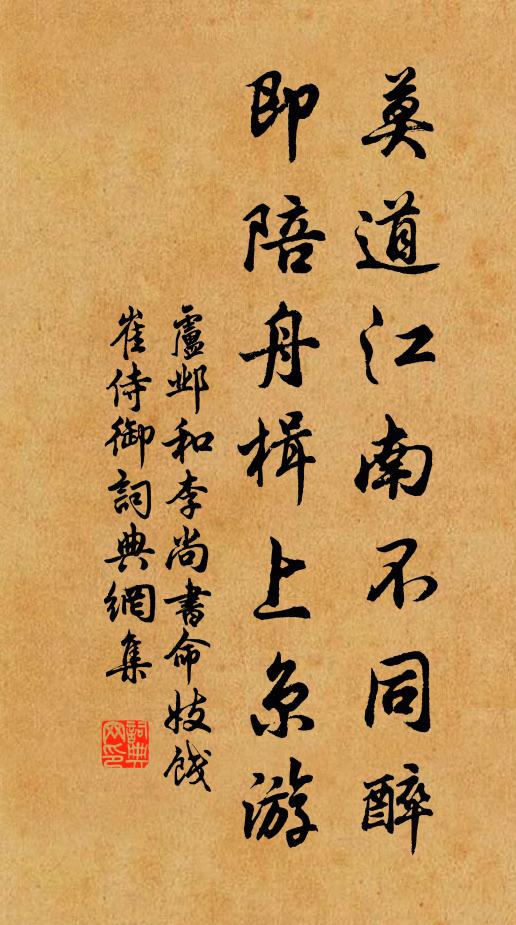 莫道江南不同醉
即陪舟楫上京游
盧邺和李尚書命妓餞
崔侍御詞典網集
詞典
网印